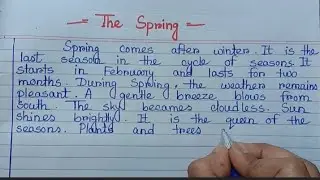 The Spring
Spring comes after winter. It is the
last season in the cycle of seasons. It
starts in February and lasts for two
months. During Spring, the weather remains
pleasant. A gentle breeze blows from
south. The sky becomes cloudless. Sun
shines brightly. It is the queen of the
seasons. Plants and trees